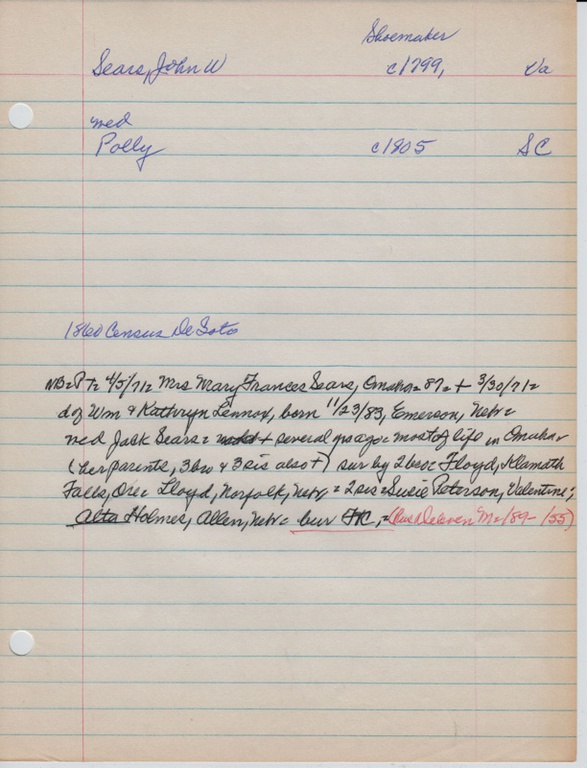 Shoemaker
Sears, John W c1799, Va
med
Polly c1805 SC
1860 Census De Soto
NB=PT= 4/5/71= Mrs Mary Frances Sears, Omaha= 87= + 3/30/71=
d of Wm & Kathryn Lennox, born 11/23/83, Emerson, Nebr=
med Jack Sears= + several yrs ago= most of life in Omaha=
(her parents, 3 bro & 3 sis also +) sur by 2 bro= Floyd, Klamath
Falls, Ore= Lloyd, Norfolk, Nebr,= 2 sis= Susie Peterson, Valentine;
Alta Holmes, Allen, Nebr= bur FHC,= (Rus M=/89-/55)